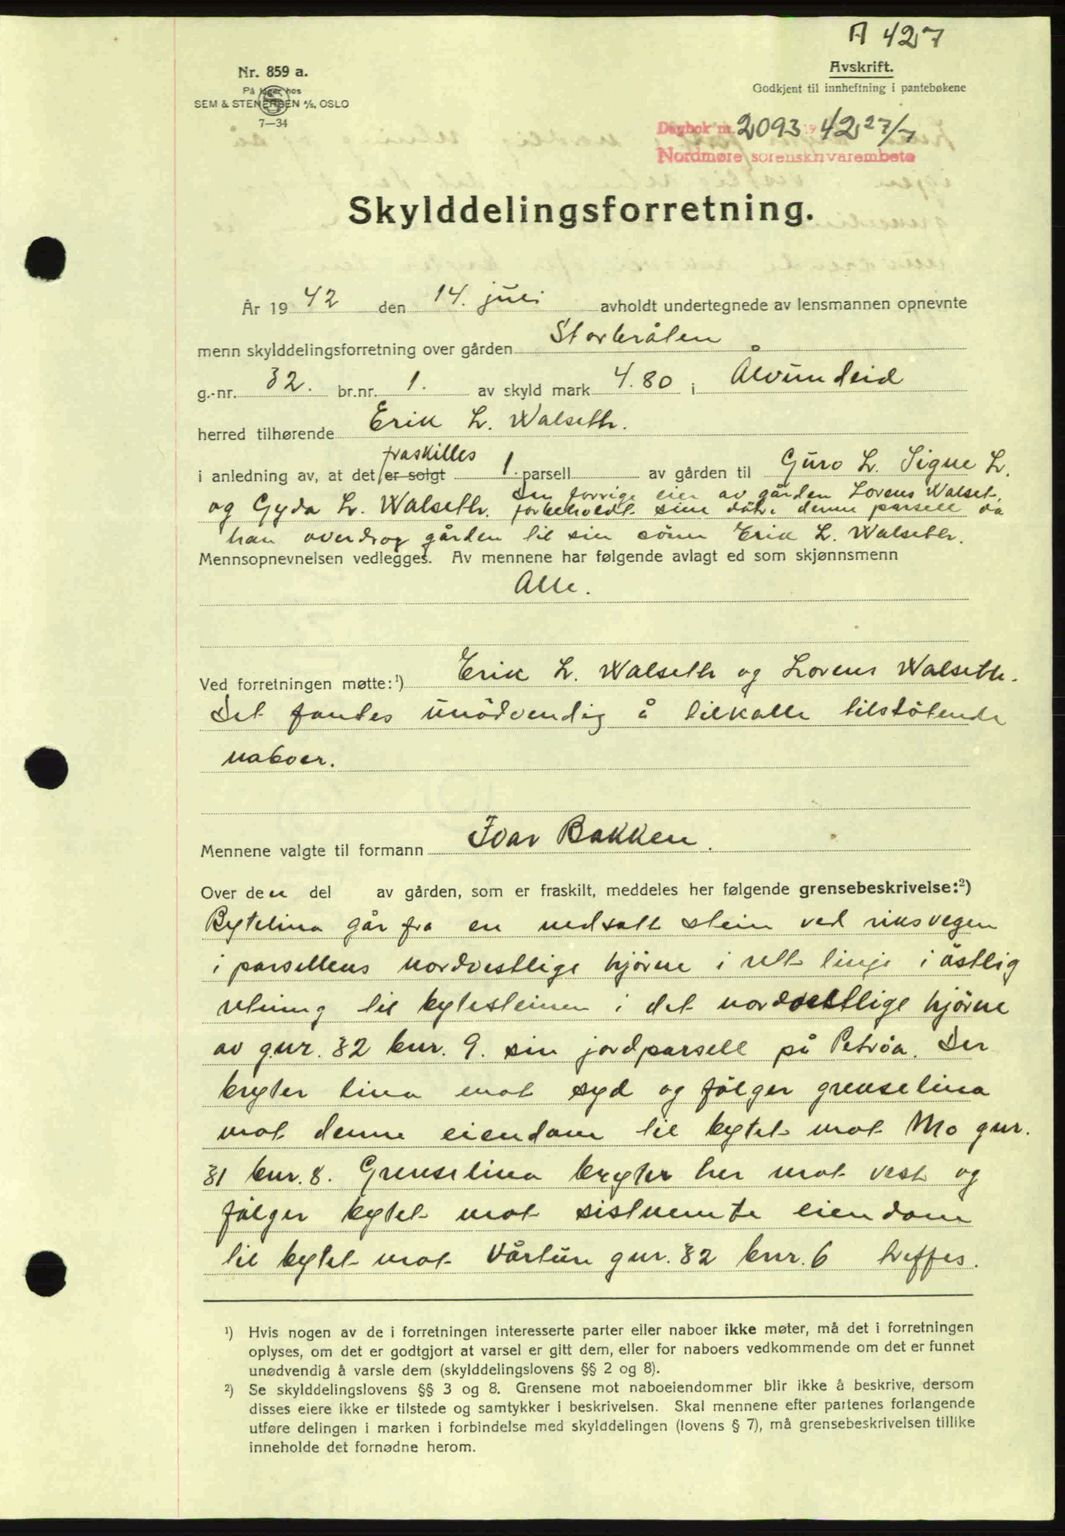 A 427
Nr. 859 a.
På lager hos
SEM & STENERSEN A/S, OSLO
7—34
Avskrift.
Godkjent til innheftning i pantebøkene
Dagbok nr. 2093 1942 27/7
Nordmøre sorenskrivarembete
Skylddelingsforretning.
År 1942 den 14. juli avholdt undertegnede av lensmannen opnevnte
menn skylddelingsforretning over gården Storbråten
g.-nr. 32. br.nr. 1. av skyld mark 4.80 i Ålvundeid
herred tilhørende Erik L. Walseth.
fraskilles
i anledning av, at det er solgt 1. parsell av gården til Guro L. Signe L.
og Gyda L. Walseth. Den forrige eier av gården Lorens Walset.
forbeholdt sine døtre denne parsell da
han overdrog gården til sin sönn Erik L. Walseth.
Mennsopnevnelsen vedlegges. Av mennene har følgende avlagt ed som skjønnsmenn
Alle.
Ved forretningen møtte:¹) Erik L. Walseth og Lorens Walseth.
Det fantes unödvendig å tilkalle tilstötende
naboer.
Mennene valgte til formann Ivar Bakken.
Over den del av gården, som er fraskilt, meddeles her følgende grensebeskrivelse:²)
Bytelina går fra en nedsatt stein ved riksvegen
i parsellens nordvestlige hjörne i rett linje i östlig
retning til bytesteinen i det nordvestlige hjörne
av gnr. 32 bnr. 9. sin jordparsell på Petrøa. Der
bryter lina mot syd og fölger grenselina
mot denne eiendom til bytet mot Mo gnr.
31 bnr. 8. Grenselina bryter her mot vest og
fölger bytet mot sistnemte eiendom
til bytet mot Vårtun gnr. 32 bnr. 6 treffes.
¹) Hvis nogen av de i forretningen interesserte parter eller naboer ikke møter, må det i forretningen
oplyses, om det er godtgjort at varsel er gitt dem, eller for naboers vedkommende om det er funnet
unødvendig å varsle dem (skylddelingslovens §§ 2 og 8).
²) Se skylddelingslovens §§ 3 og 8. Grensene mot naboeiendommer blir ikke å beskrive, dersom
disses eiere ikke er tilstede og samtykker i beskrivelsen. Skal mennene efter partenes forlangende
utføre delingen i marken i forbindelse med skylddelingen (lovens § 7), må grensebeskrivelsen tillike
inneholde det fornødne herom.